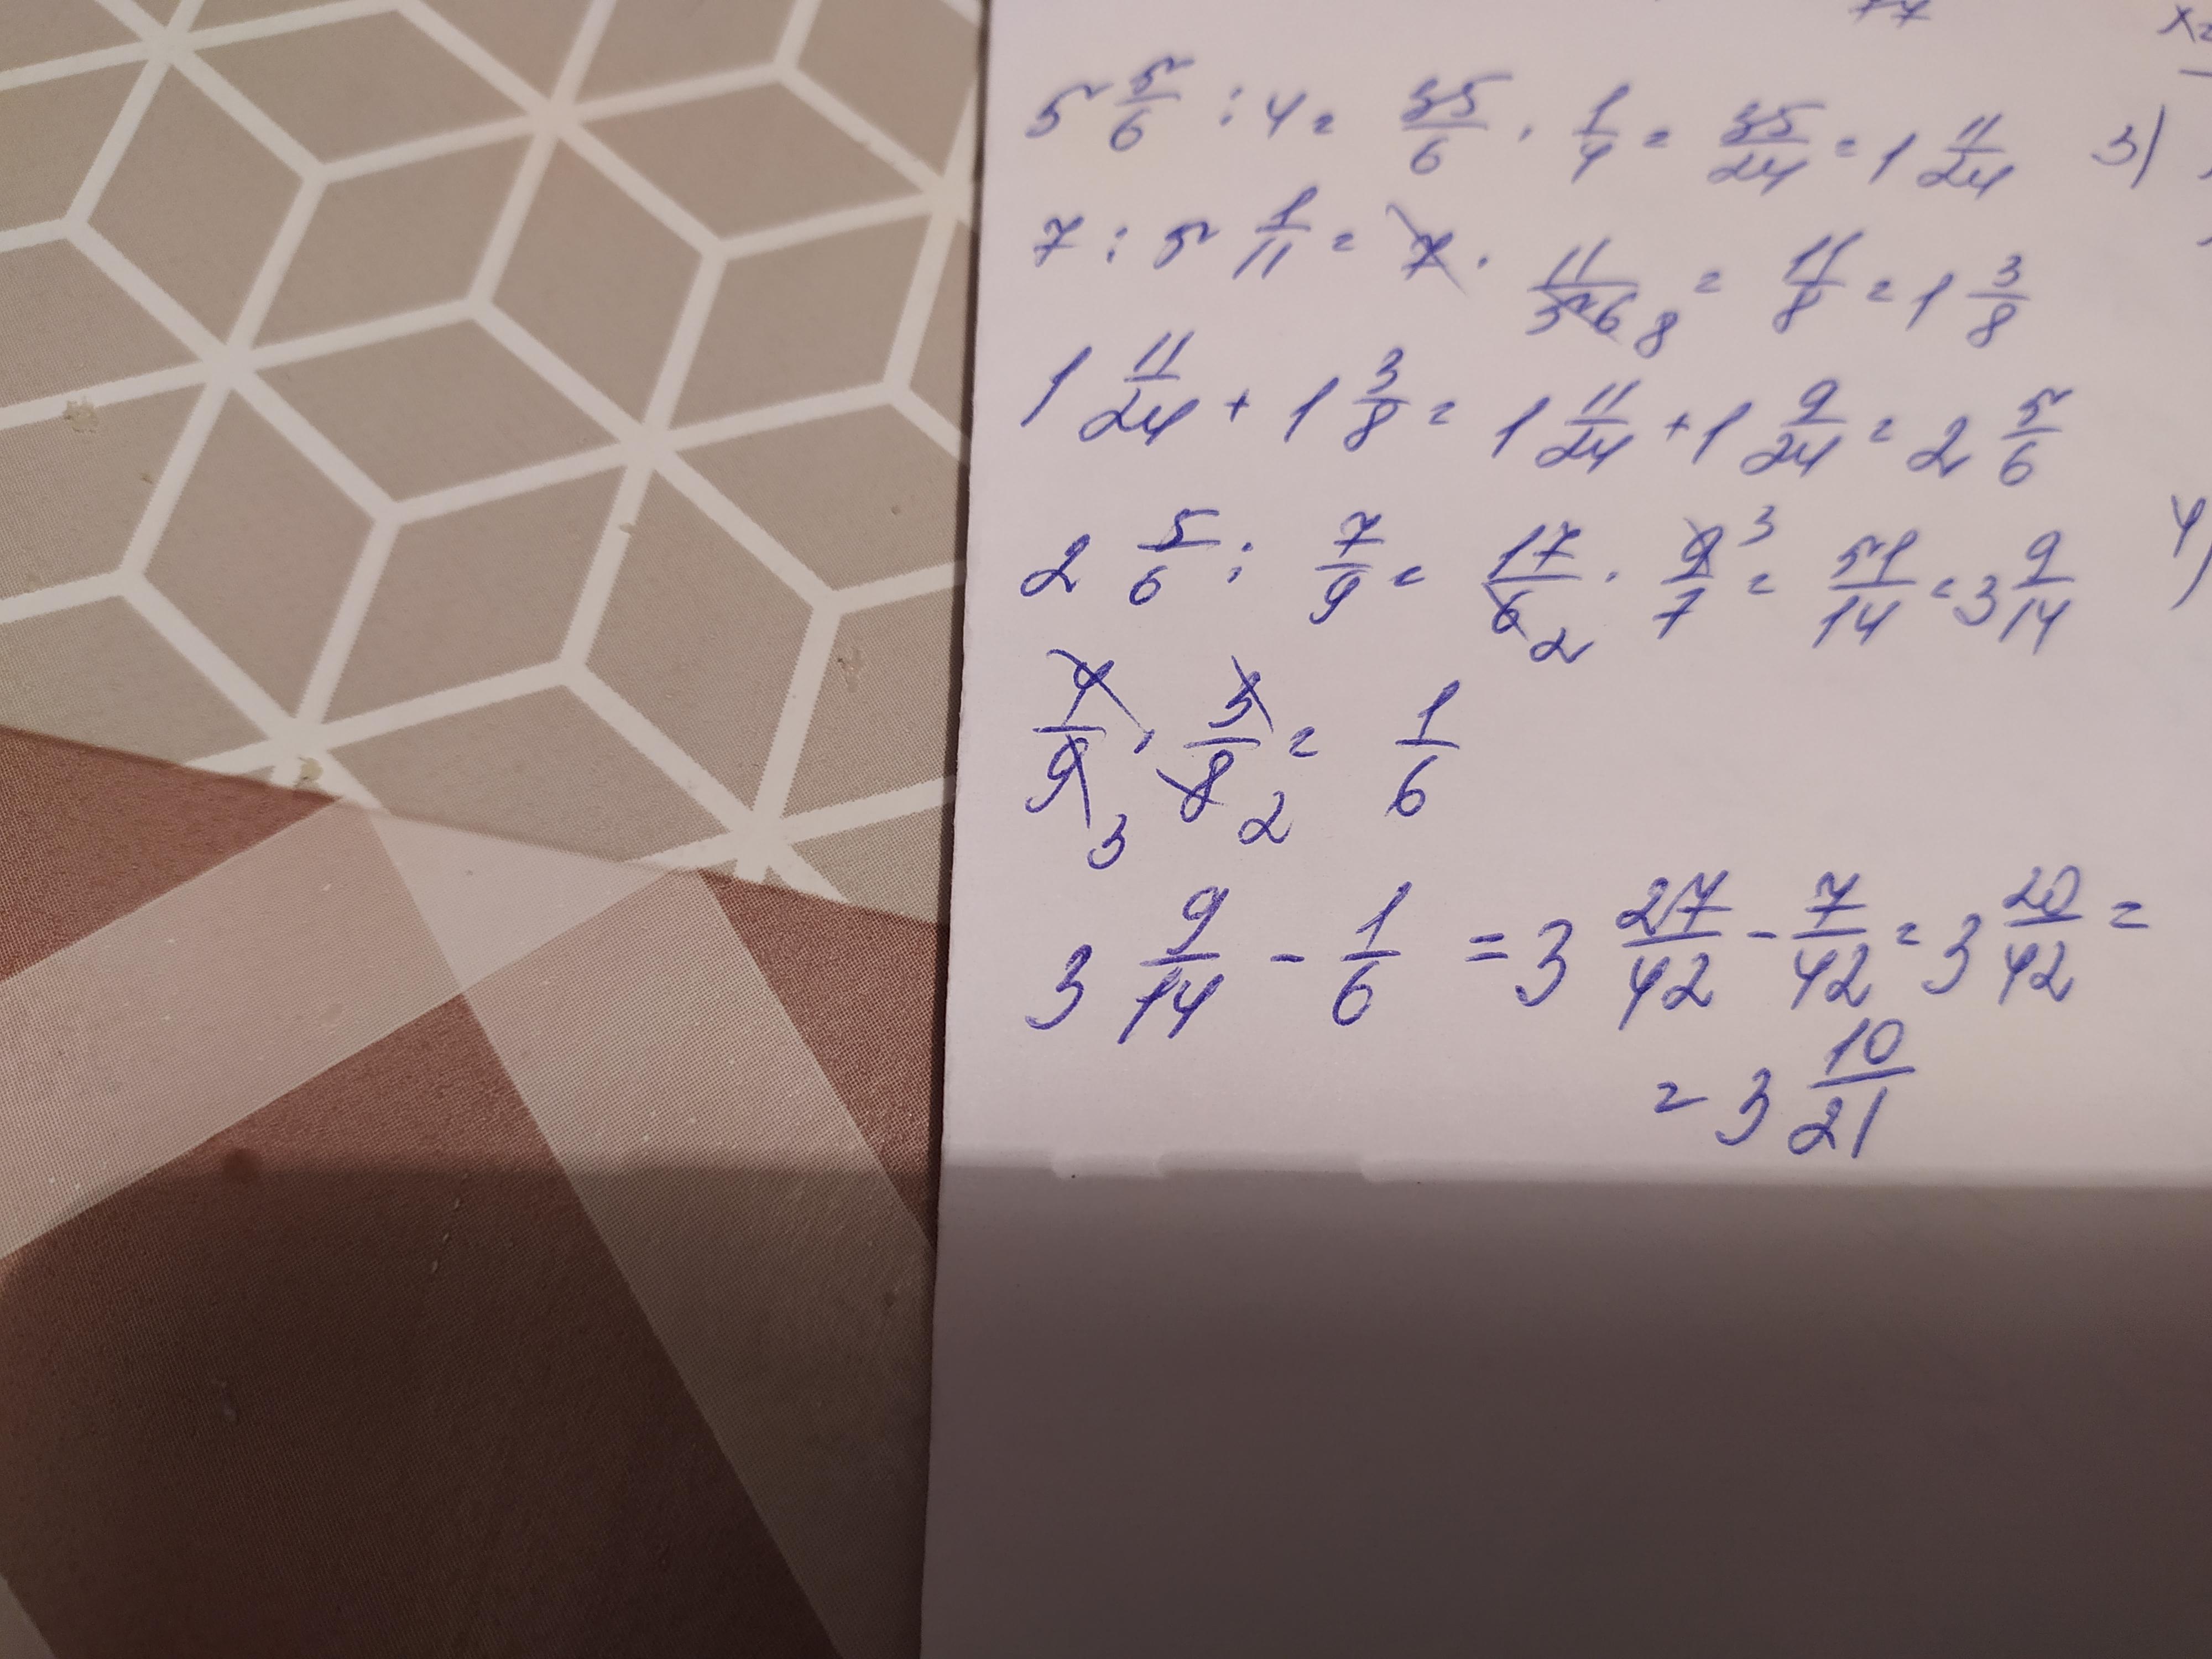 5 5/6 : 4 = 35/6 · 1/4 = 35/24 = 1 11/24 3)
7 : 5 1/11 = 7 · 11/56 8 = 11/8 = 1 3/8
1 11/24 + 1 3/8 = 1 11/24 + 1 9/24 = 2 5/6
2 5/6 : 7/9 = 17/6 2 · 9/7 3 = 51/14 = 3 9/14 4)
4/9 3 · 3/8 2 = 1/6
3 9/14 - 1/6 = 3 27/42 - 7/42 = 3 20/42 =
= 3 10/21